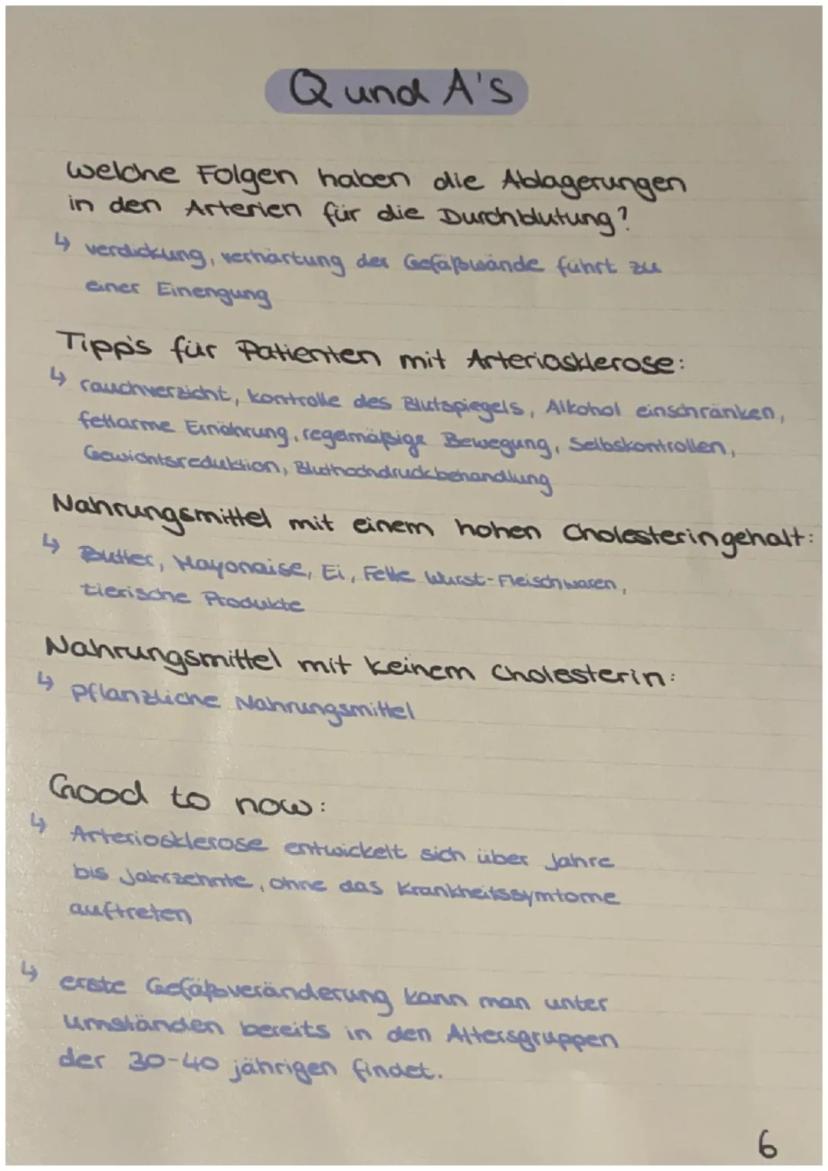 Q und A's
Welche Folgen haben die Ablagerungen
in den Arterien für die Durchblutung?
↳ verdickung, verhärtung der Gefäßwände führt zu
einer Einengung
Tipp's für Patienten mit Arteriosklerose:
↳ rauchverzicht, kontrolle des Blutspiegels, Alkohol einschränken,
fettarme Ernährung, regelmäßige Bewegung, Selbskontrollen,
Gewichtsreduktion, Bluthochdruckbehandlung
Nahrungsmittel mit einem hohen Cholesteringehalt:
↳ Butter, Mayonaise, Ei, Fette Wurst-Fleischwaren,
tierische Produkte
Nahrungsmittel mit keinem Cholesterin:
↳ pflanzliche Nahrungsmittel
Good to now:
↳ Arteriosklerose entwickelt sich über Jahre
bis Jahrzehnte, ohne das Krankheitssymtome
auftreten
↳ erste Gefäßveränderung kann man unter
umständen bereits in den Altersgruppen
der 30-40 jährigen findet.
6